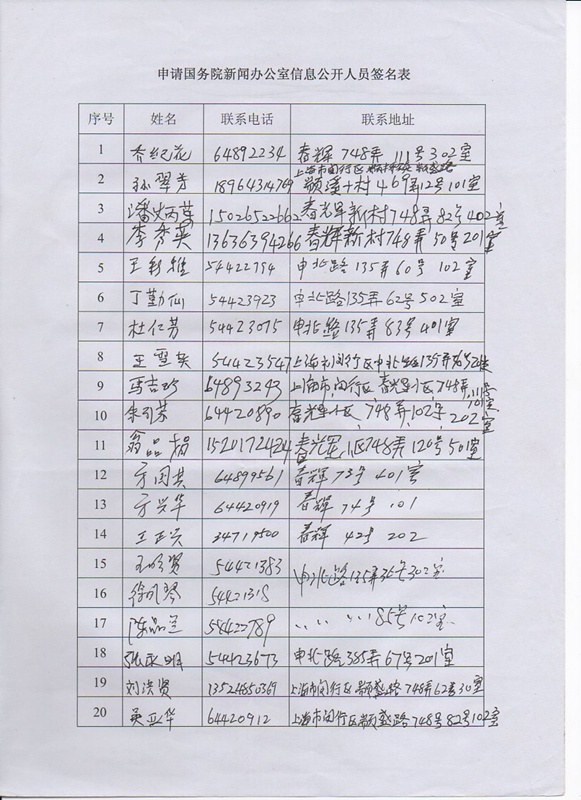 申请国务院新闻办公室信息公开人员签名表
序号 姓名 联系电话 联系地址
1 乔纪花 64892234 春辉748弄111号302室
上海市闵行区
2 孙翠芳 18964314749 颛溪十村469弄12号101室
3 潘炳莲 15026522662 春光辉新村748弄82号402室
4 李秀英 13636394266 春辉新村748弄50号201室
5 王 54422794 申北路135弄60号102室
6 丁勤仙 54423923 申北路135弄62号502室
7 杜仁芳 54423075 申北路135弄83号401室
8 王雪英 54423547 上海市闵行区申北路135弄
9 马吉巧 64893293 上海市闵行区春辉小区748弄111号
10 朱引荣 64420890 春辉小区748弄102号202室
11 翁品娟 1520172424 春光辉小区748弄120号501室
12 方国英 64899561 春辉73号401室
13 方兴华 64420919 春辉74号101
14 王正兴 34719500 春辉42号202
15 王明贤 54421383 申北路135弄36号302室
16 徐凤琴 54421318
17 陈品兰 54422789 〃 〃 〃 85号102室
18 张永明 54423673 申北路385弄67号201室
19 刘洪贤 13524850369 上海市闵行区颛盛路748弄62号30室
20 吴亚华 64420912 上海市闵行区颛盛路748号82号102室